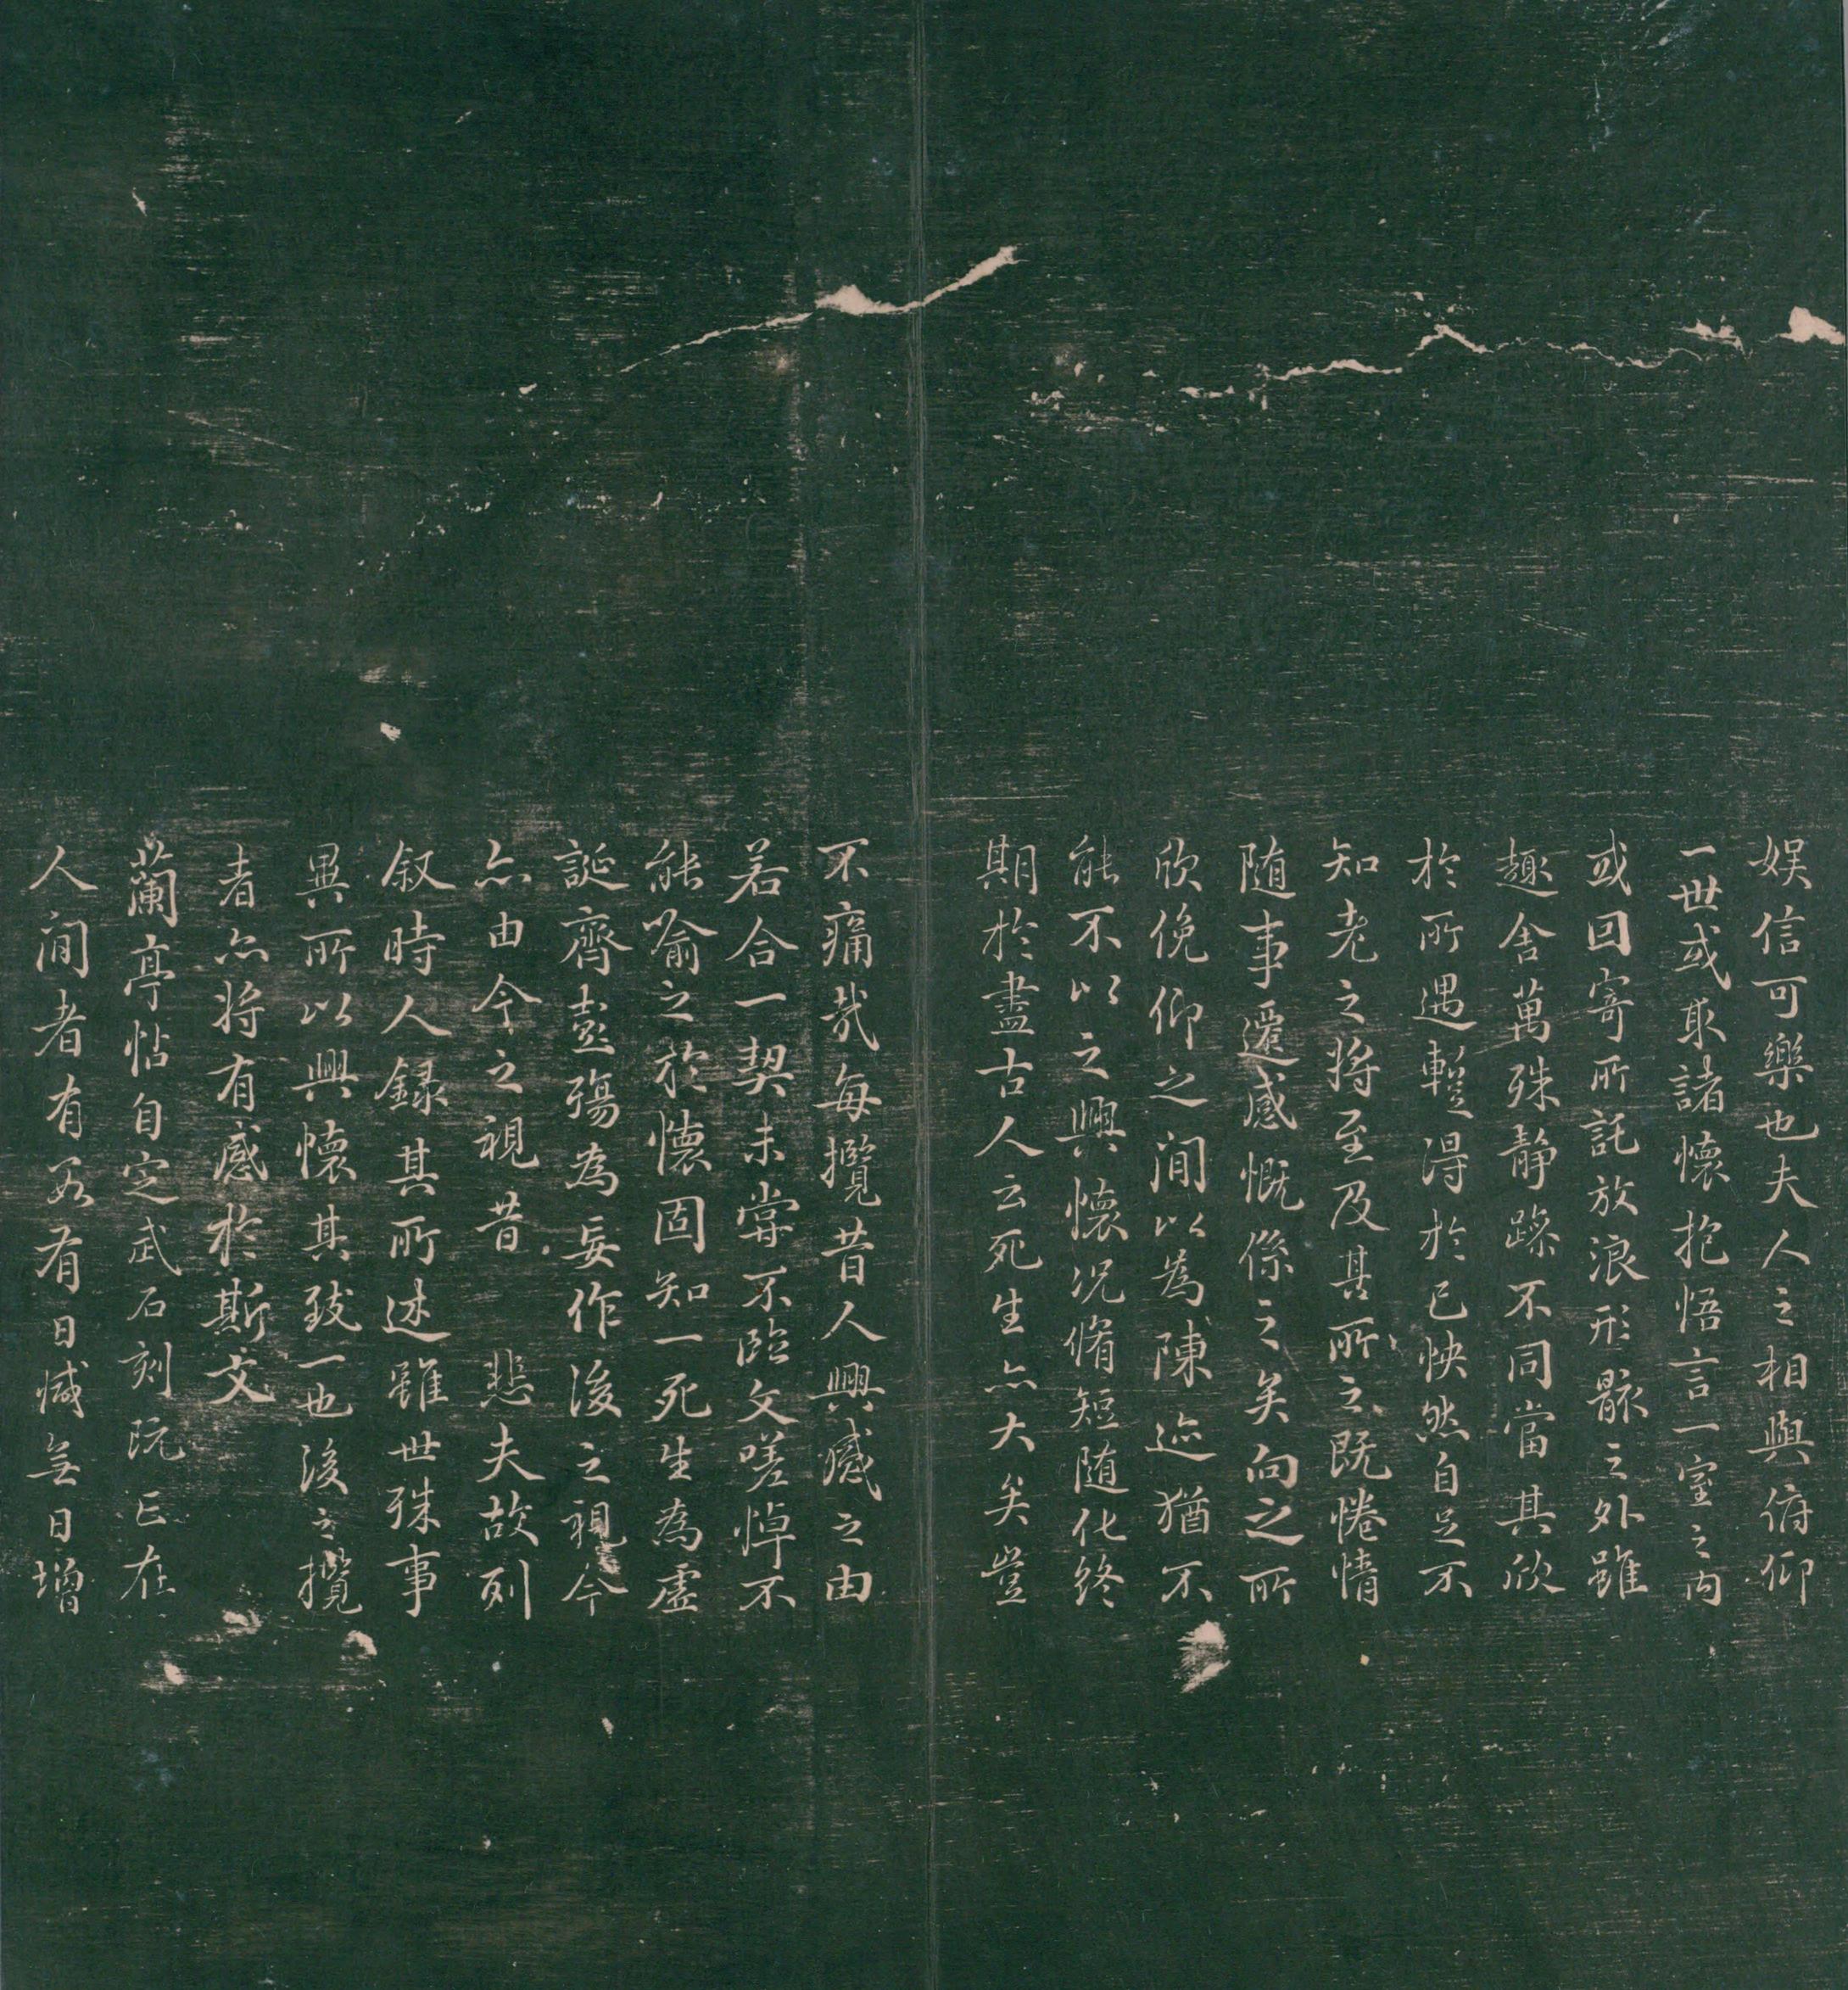 娱信可樂也夫人之相與俯仰
一世或取諸懷抱悟言一室之內
或因寄所託放浪形骸之外雖
趣舍萬殊静躁不同當其欣
於所遇暫得於己怏然自足不
知老之將至及其所之既惓情
随事遷感慨係之矣向之所
欣俛仰之間以為陳迹猶不
能不以之興懷况脩短随化終
期於盡古人云死生亦大矣豈
不痛哉每攬昔人興感之由
若合一契未甞不臨文嗟悼不
能喻之於懷固知一死生為虛
誕齊彭殤為妄作後之視今
亦由今之視昔悲夫故列
叙時人録其所述雖世殊事
異所以興懷其致一也後之攬
者亦將有感於斯文
蘭亭帖自定武石刻既亡在
人間者有數有日減無日增